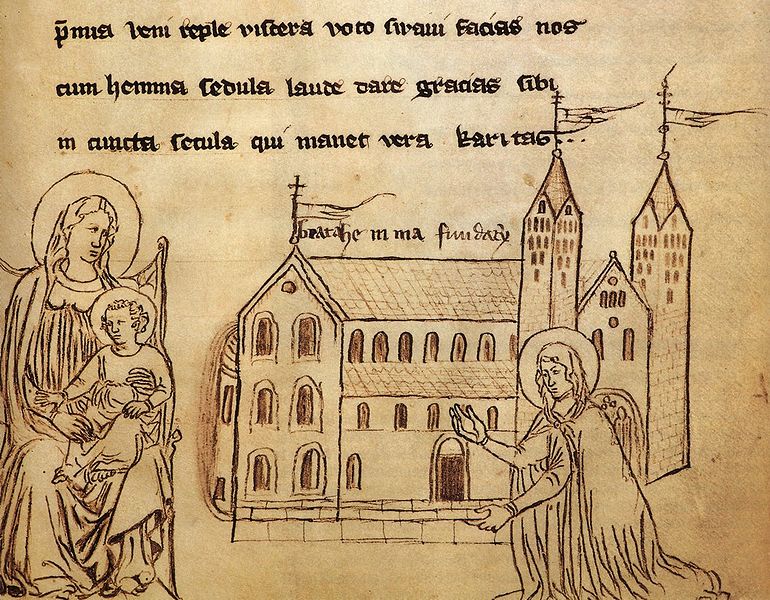 p̄mia veni reple viscera voto suavi facias nos
cum hemma sedula laude dare gracias sibi
in cuncta secula qui manet vera karitas...
beata he m ma fundat⁊